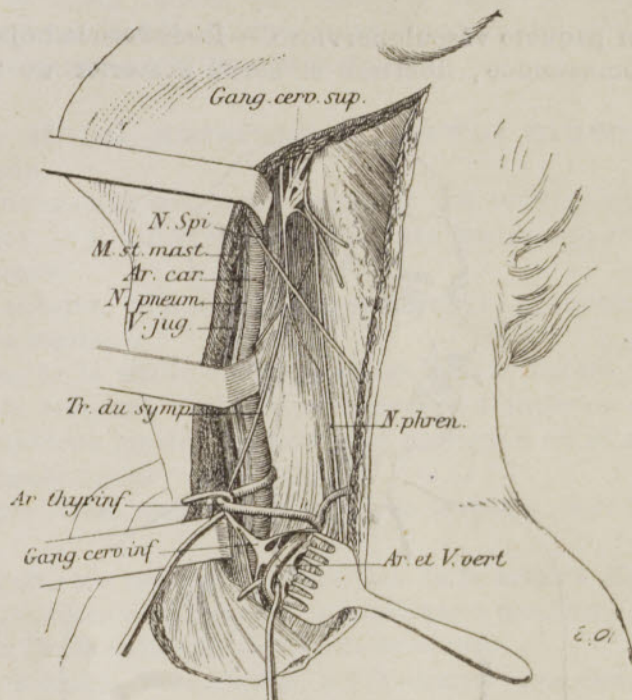 Gang. cerv. sup.
N. Spi
M. st. mast.
Ar. car.
N. pneum
V. jug
Tr. du symp
N. phren.
Ar thyr inf
Gang. cerv inf
Ar. et V. vert